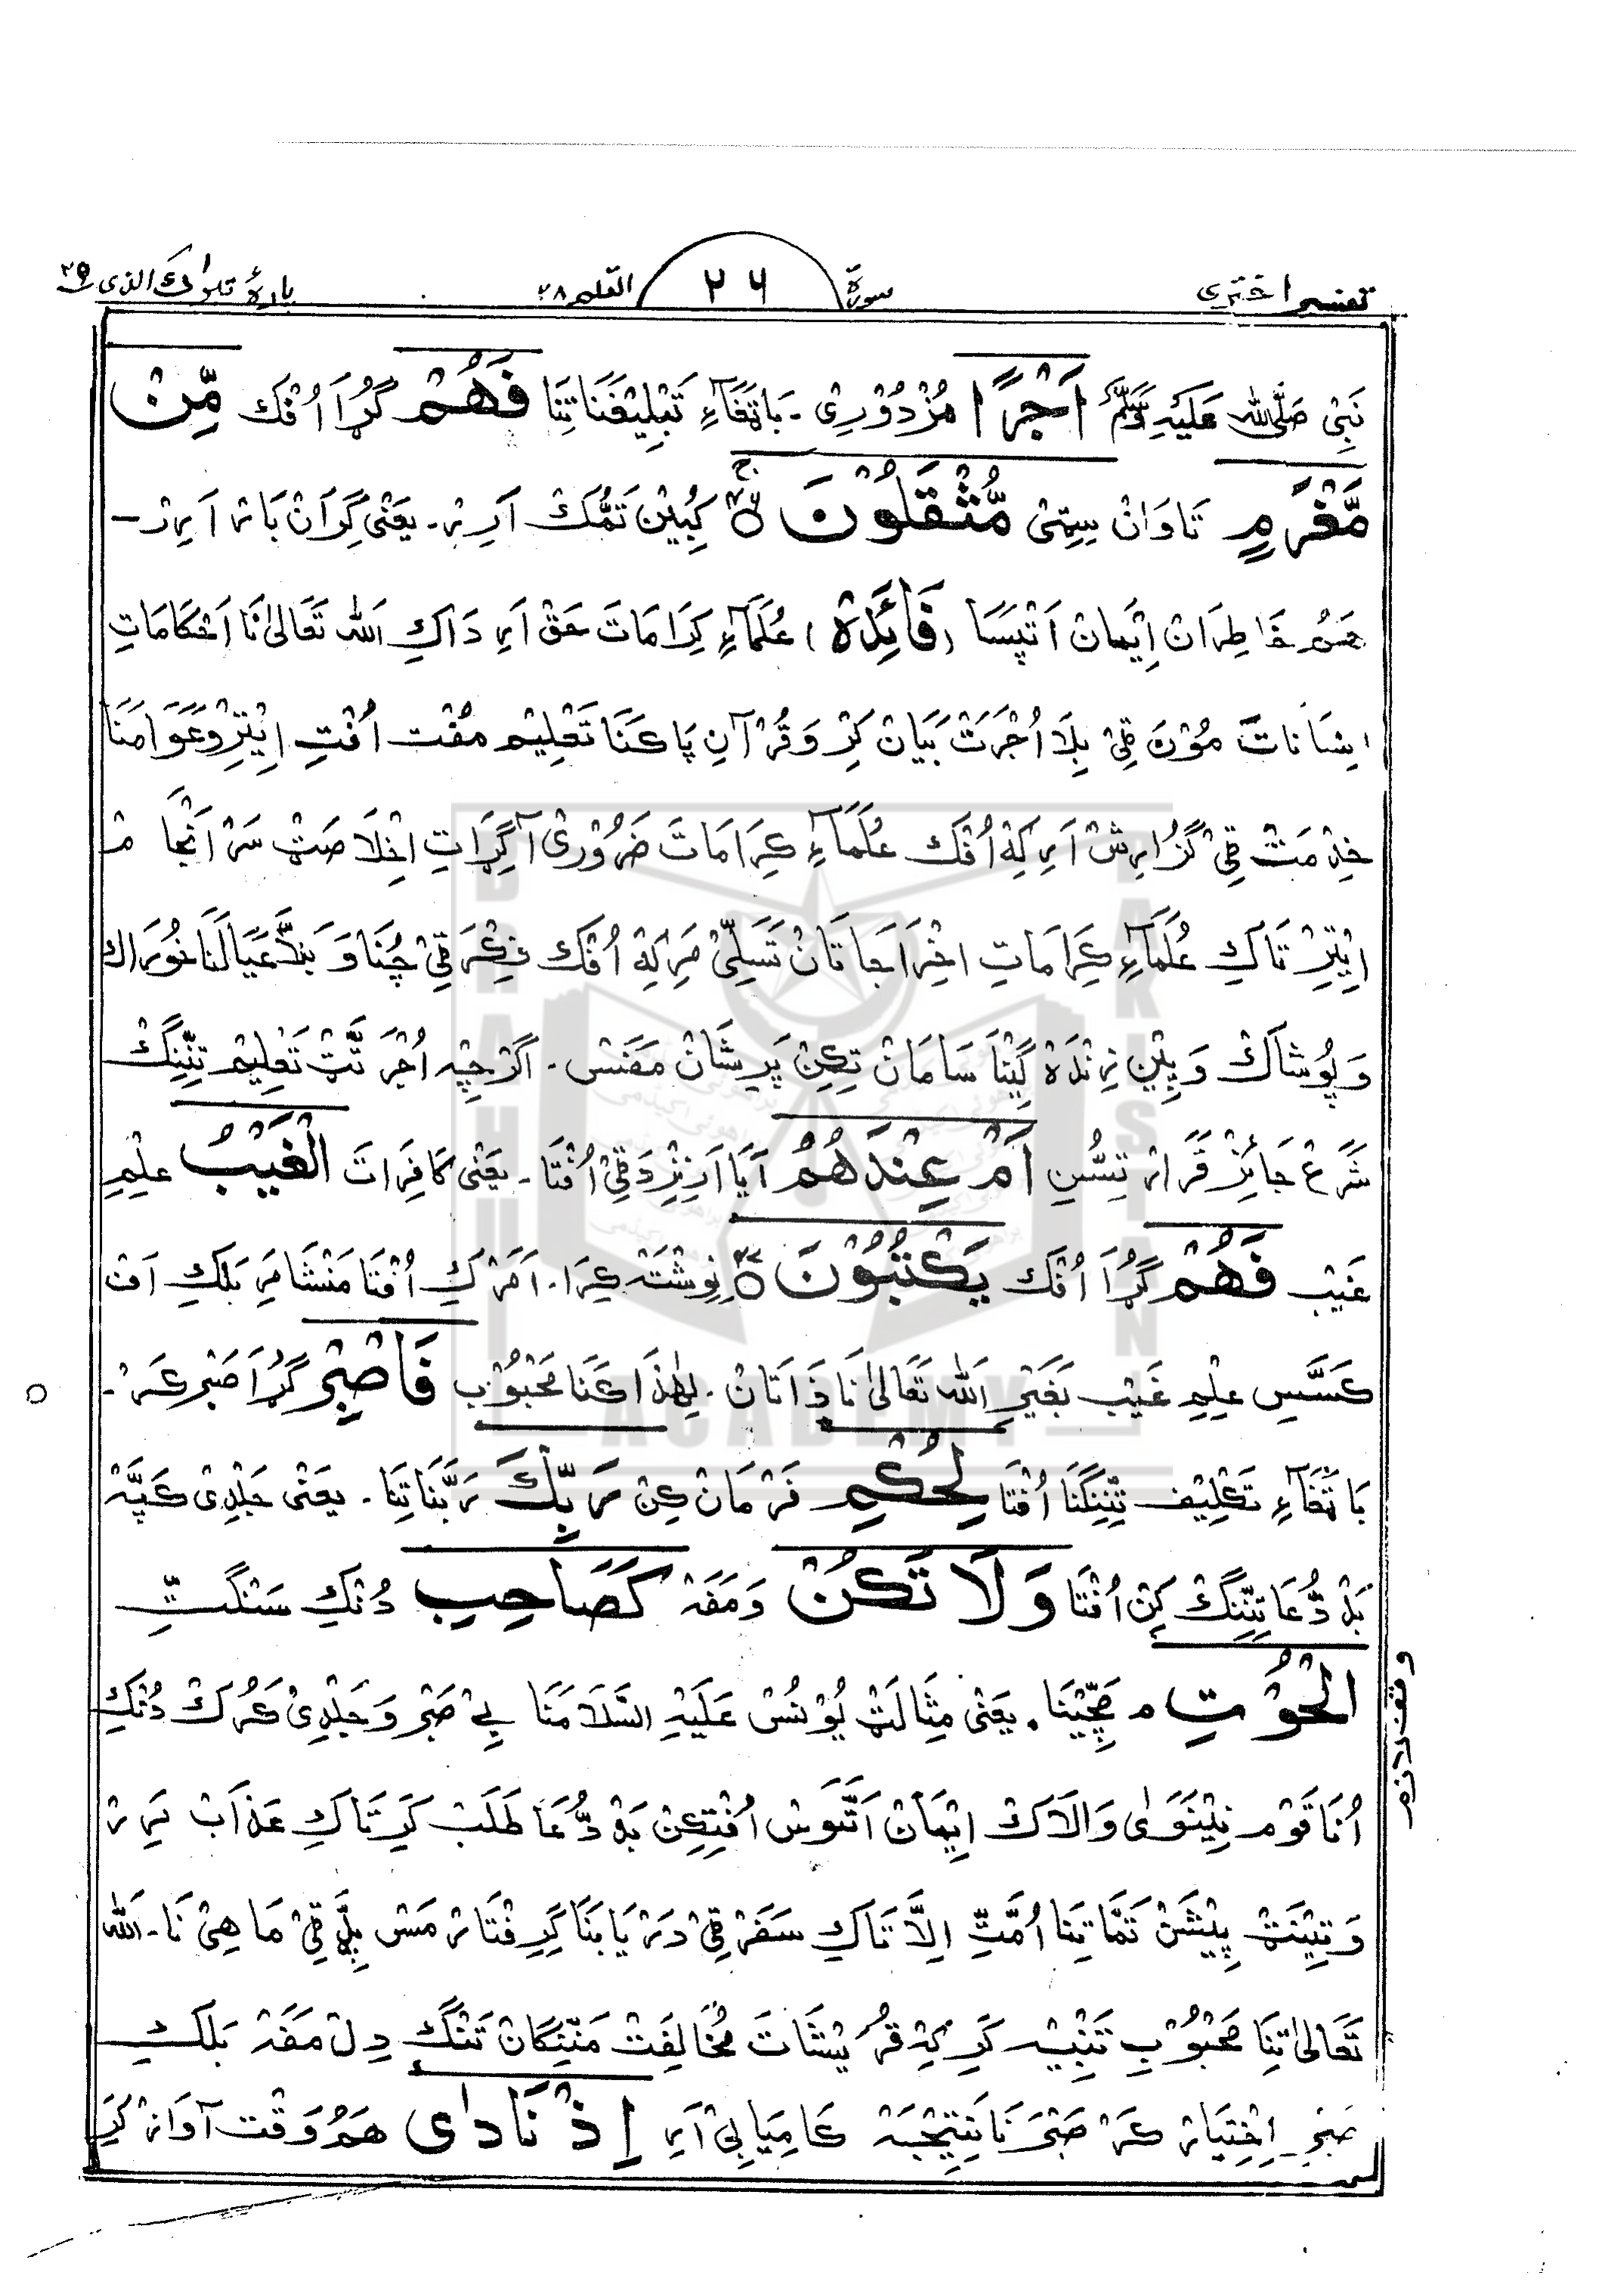 تفسیر اختری سورۃ ۲۶ القلم ۶۸ پارۂ تبٰرک الذی ۲۹
نَبِیْ صَلَّی اللہ عَلَیْہِ وَسَلَّمْ اَجْرًا مُزْدُوْرِیْ ۔ بَاتَفَاءِ تَبْلِیْغَنَا تِنَا فَهُمْ گُڑَا اُفْک مِّنْ
مَّغْرَمٍ تَاوَانْ سِتِیْ مُّثْقَلُوْنَ ۝ کُبِیْن تَمُّکْ اَرِیْر ۔ یَعْنٰی گِرَانْ بَاْر اَرِیْر ۔
ہَمُو خَاطِرَان اِیْمَان اَتَپَسَا (فَائِدَہ) عُلَمَاءِ کِرَامَاتَ حَقْ اَرِ دَاکِ اَللہ تَعَالٰی نَا اَحْکَامَاتِ
اِنسَانَاتَ مُوْنَ ٹِیْ بِلَا اُجْرَتْ بَیَانْ کِرْ وَ قُرْآنِ پَاکَنَا تَعْلِیْم مُفْت اُفْتِ اِیْتِرْ وَعَوَامَنَا
خِدْمَتْ ٹِیْ گُزَارِشْ اَرِ کِہ اُفْک عُلَمَاءِ کِرَامَاتَ ضَرُوْرِیْ آ گِڑَاتِ اِخْلَاصَتْ سَرْ اَنْجَامْ
اِیْتِرْ تَاکِ عُلَمَاءِ کِرَامَاتِ اِخْرَاجَاتَانْ تَسَلِّیْ مَرِ کِہ اُفْک فِکْرَ ٹِیْ چُنَا وَ بَنْدَ عَیَالَنَا خُوْرَاک
وَ پُوْشَاکْ وَ پِیْنِ زِنْدَہ گِیْنَا سَامَانْ تِکِنْ پَرِیْشَانْ مَفَسْ ۔ اَگَرْچِہ اُجْرَتَّتْ تَعْلِیْم تِنِّنِگْ
شَرْعْ جَائِزْ قَرَارْ تِسُّنِ اَمْ عِنْدَهُمُ آیَا اَرِیْرْ ٹِیْ اُفْتَا ۔ یَعْنٰی کَافِرَاتَ الْغَیْبُ عِلْمِ
غَیْب فَهُمْ گُڑَا اُفْک یَکْتُبُوْنَ ۝ نِوِشْتَہ کِرَا ۔ اَمَرْ کِ اُفْتَا مَنْشَا مَرِ بَلْکِ اَفْ
کَسَّسِ عِلْمِ غَیْب بَغَیْرِ اَللہ تَعَالٰی نَا ذَاتَانْ ۔ لِہٰذَا کَنَا مَحْبُوْب فَاصْبِرْ گُڑَا صَبْر کَرْ ۔
بَاتَفَاءِ تَکْلِیْف تِنِّنِگَنَا اُفْتَا لِحُکْمِ فَرْمَانْ کِنْ رَبِّکَ رَبَّنَا تِنَا ۔ یَعْنٰی جَلْدِیْ کَپَّہ
بَدْ دُّعَا تِنِّنِگْ کِنْ اُفْتَا وَلَا تَکُنْ وَ مَفَہ کَصَاحِبِ دُنْکِ سَنْگَتِّ
الْحُوْتِ م مَچِّیْنَا ۔ یَعْنٰی مِثَالَتْ یُوْنُسْ عَلَیْہِ السَّلَامْنَا بِےْ صَبْر وَ جَلْدِیْ کَرُکْ دُنْکِ
اُنَا قَوْم نِیْنَوٰی وَالَاکْ اِیْمَانْ اَتَّوَس اُفْتِکِنْ بَدْ دُّعَا طَلَبْ کَرِ تَاکِ عَذَابْ بَرِ
وَ تِیْنَتْ پِیْشَنْ تَمَّا تِنَا اُمَّتِّ اِلَّا تَاکِ سَفَرْ ٹِیْ دَرْیَابْنَا گِرِفْتَارْ مَسْ پِڈِّ ٹِیْ مَاہِیْ نَا ۔ اَللہ
تَعَالٰی تِنَا مَحْبُوْبِ تَنْبِیْہ کَرِ کِہ قُرَیْشَاتَ مُخَالِفَتْ مَنِّنِگَانْ تَنْگْ دِلْ مَفَہ بَلْکِ
صَبْر اِخْتِیَارْ کَرْ صَبْرَ نَا نَتِیْجَہ کَامِیَابِیْ اَرِ اِذْ نَادٰی ہَمُو وَقْت آوَازْ کَرِ
وقف لازم
BRAHUI
ACADEMY
PAKISTAN